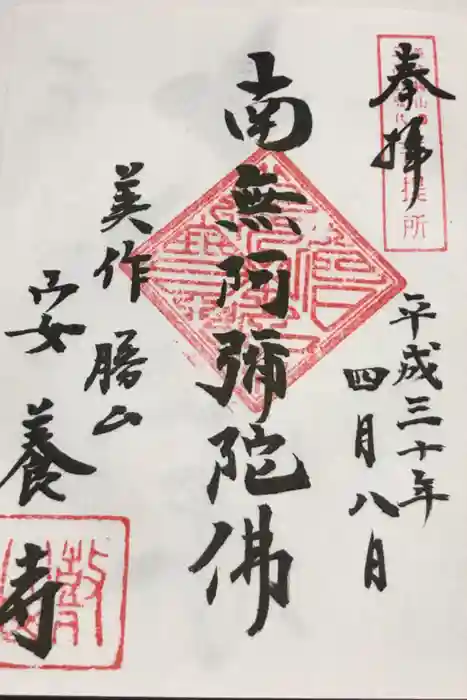 奉拝
提所
平成三十年
四月八月
南無阿彌陀佛
美作勝山
安養寺